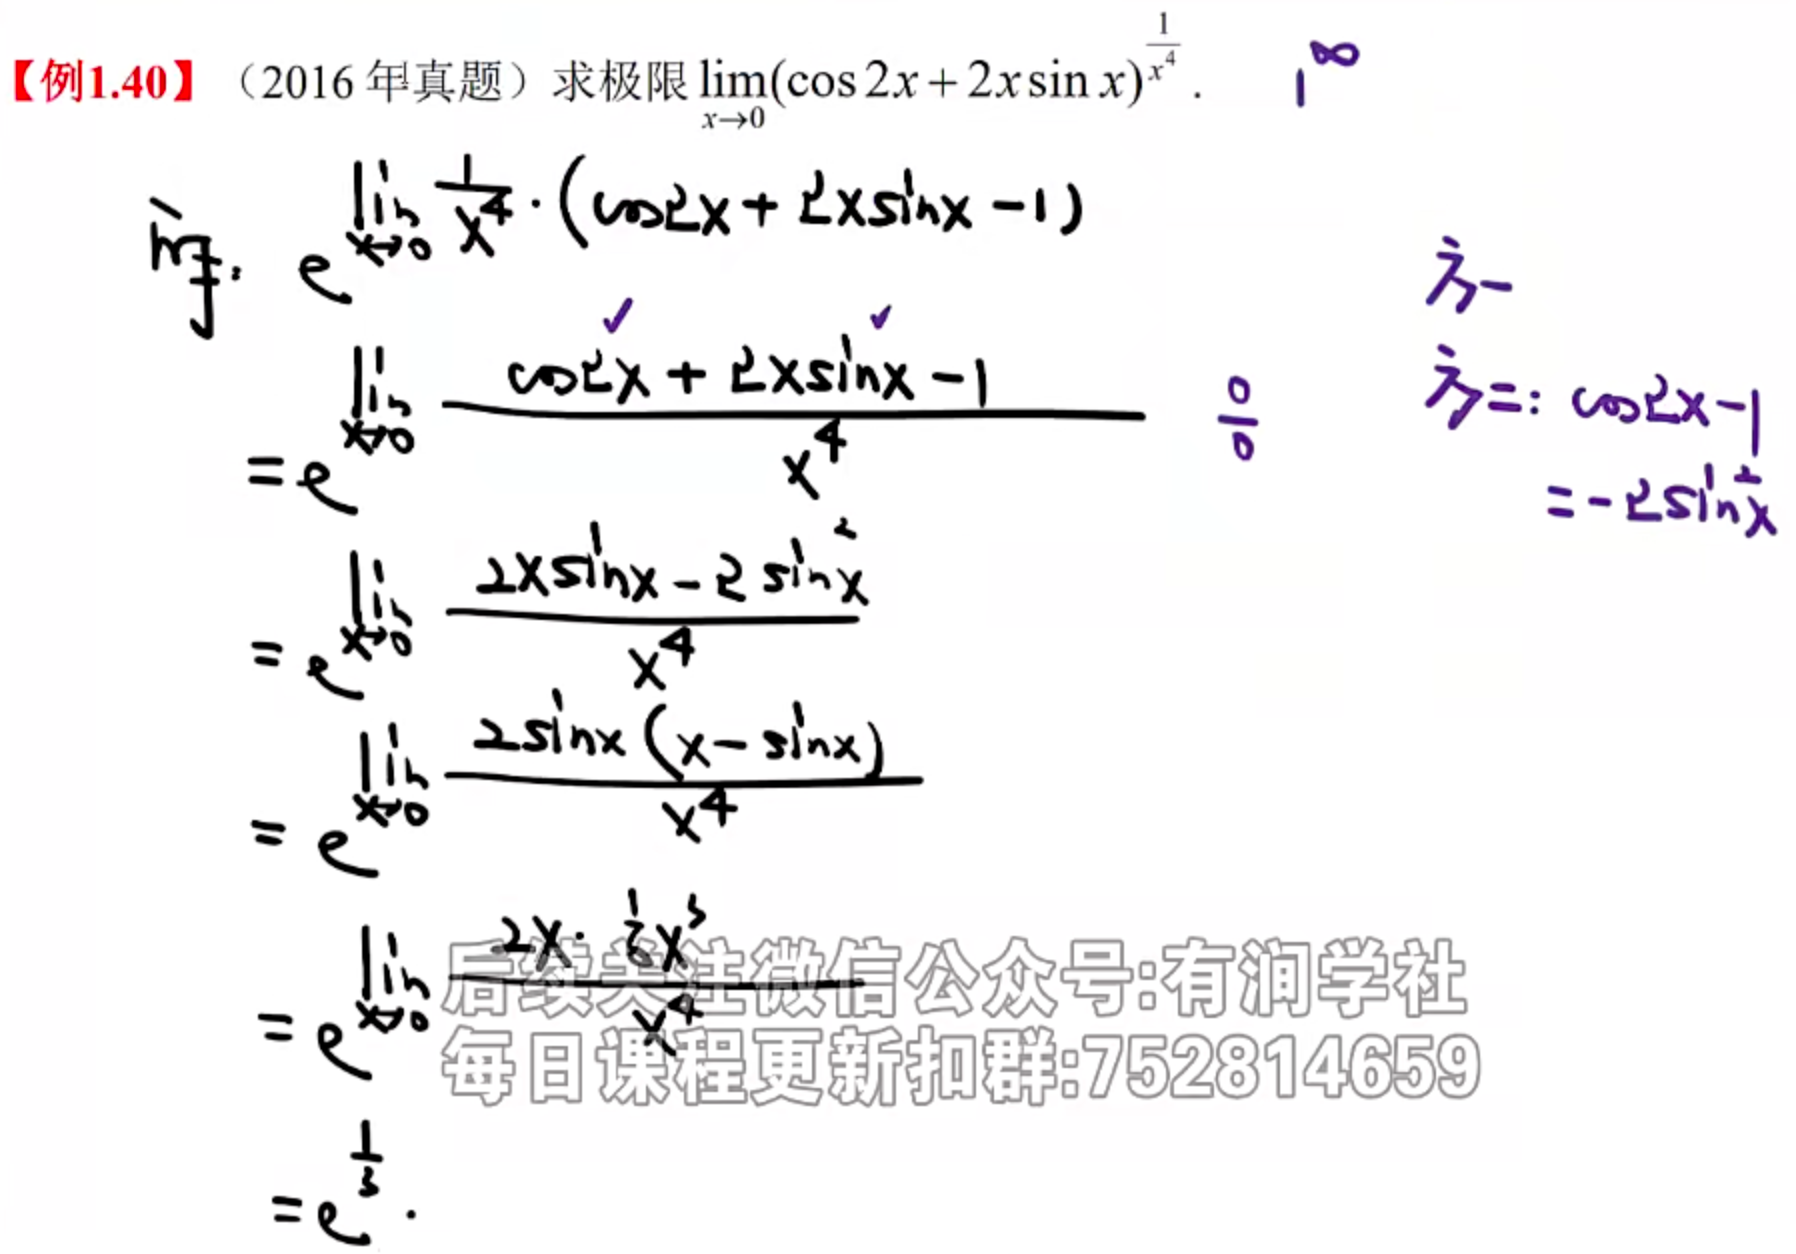 【例1.40】（2016年真题）求极限 lim x→0 (cos 2x + 2x sin x)^(1/x^4) . 1^∞
解: e^(lim x→0 1/x^4 · (cos2x + 2xsinx - 1))
方一
= e^(lim x→0 (cos2x + 2xsinx - 1)/x^4) 0/0
方二: cos2x - 1
= -2sin²x
= e^(lim x→0 (2xsinx - 2sin²x)/x^4)
= e^(lim x→0 2sinx(x - sinx)/x^4)
= e^(lim x→0 (2x · 1/6 x³)/x^4)
后续关注微信公众号:有润学社
每日课程更新扣群:752814659
= e^(1/3) .